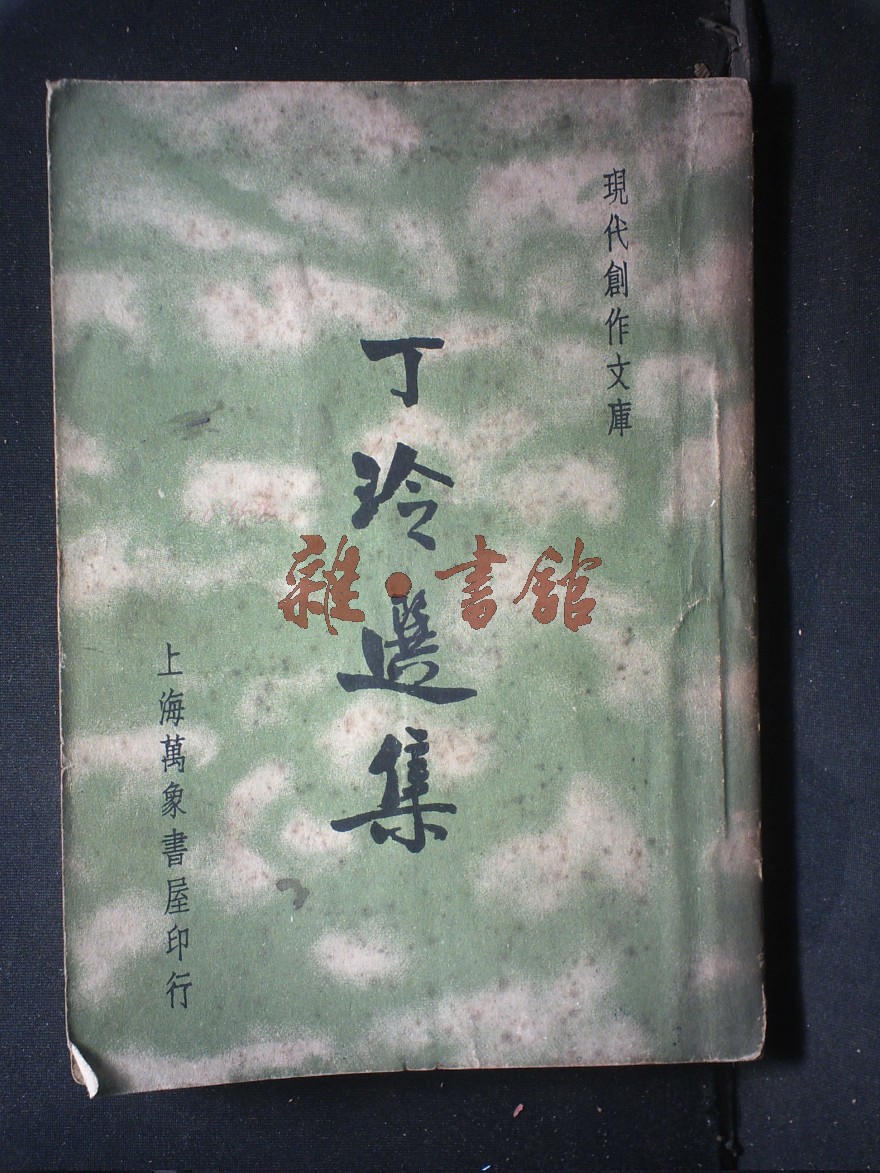 現代創作文庫
丁玲選集
上海萬象書屋印行
雜·書館